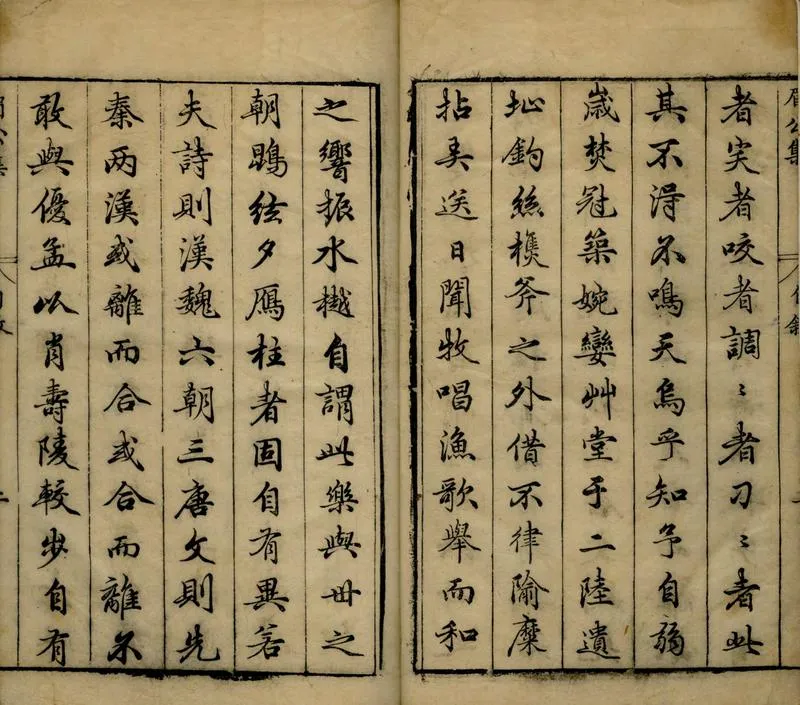 眉公集
者宎者咬者調〻者刁〻者此
其不淂不鳴天烏乎知予自弱
嵗焚冠築婉孌艸堂于二陸遺
址釣絲樵斧之外借不律隃糜
拈弄送日聞牧唱漁歌舉而和
之響振水樾自謂此樂與丗之
朝鵾絃夕鴈柱者固自有異若
夫詩則漢魏六朝三唐文則先
秦兩漢或離而合或合而離不
敢與優孟以肖壽陵較步自有